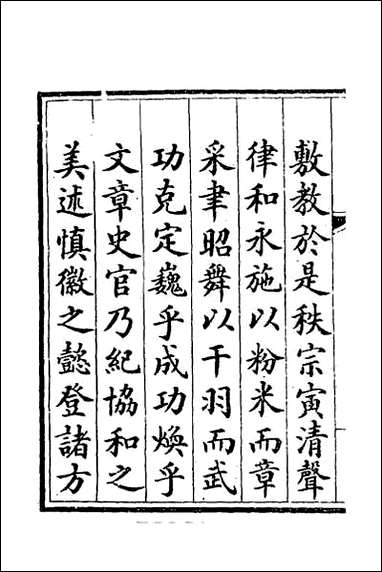 敷教於是秩宗寅清聲
律和永施以粉米而章
采聿昭舞以干羽而武
功克定巍乎成功煥乎
文章史官乃紀協和之
美述慎徽之懿登諸方